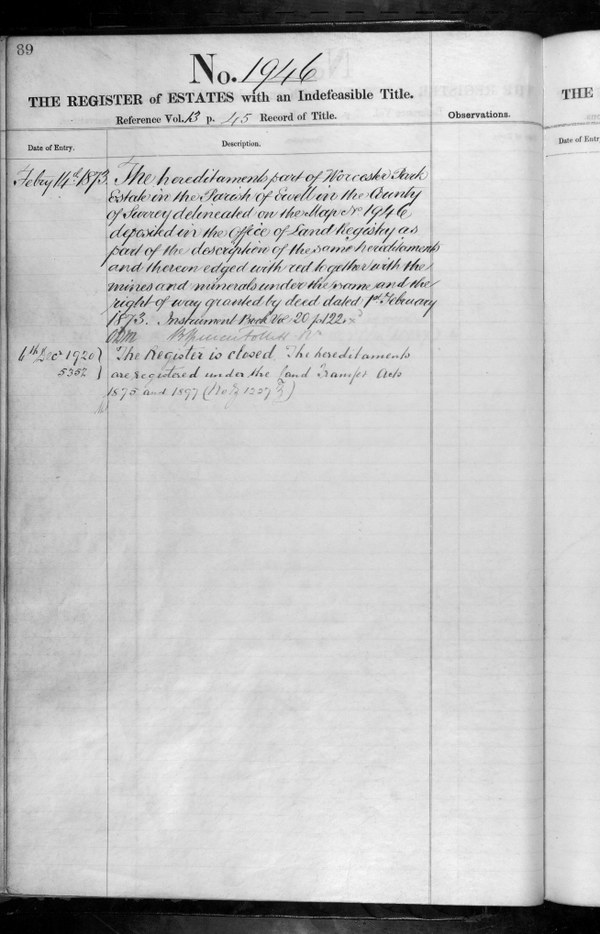 89
No. 1946
THE REGISTER of ESTATES with an Indefeasible Title.
Reference Vol. 13 p. 45 Record of Title.
Observations.
Date of Entry.
Description.
Febry 14th 1873.
The hereditaments part of Worcester Park
Estate in the Parish of Ewell in the County
of Surrey delineated on the Map No 1946
deposited in the Office of Land Registry as
part of the description of the same hereditaments
and thereon edged with red together with the
mines and minerals under the same and the
right of way granted by deed dated 1st February
1873. Instrument Book Vol 20 fol 22
6th Decr 1920
5352
The Register is closed The hereditaments
are registered under the Land Transfer Acts
1875 and 1897
THE
Date of Entry